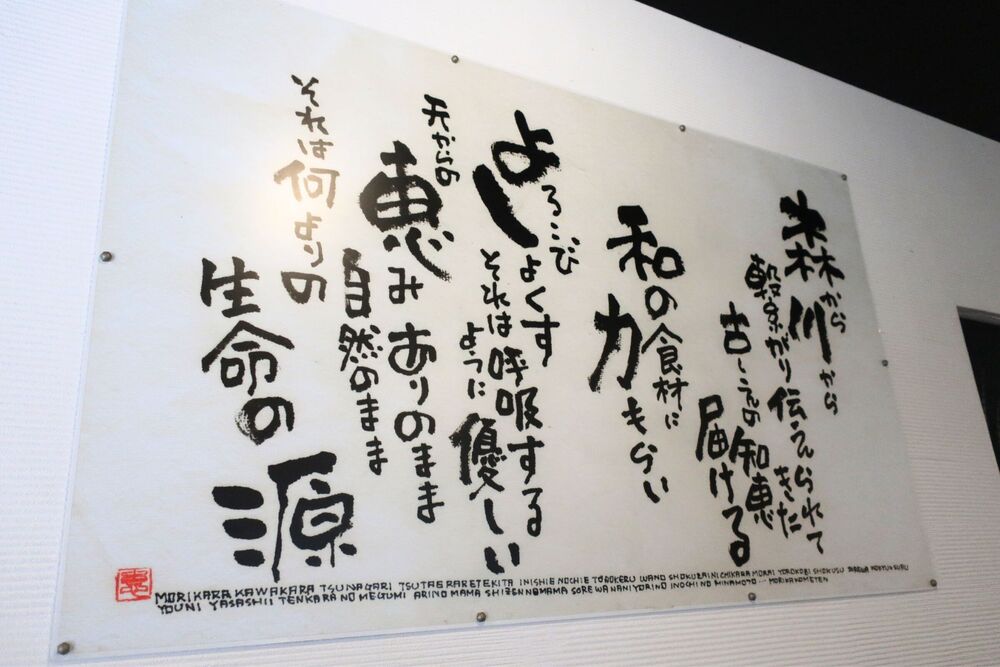 森から
川から
繋がり伝えられて
きた
古しえの知恵
届ける
和の食材に
力もらい
よろこび
しょくす
それは呼吸する
ように優しい
天からの
恵みありのまま
自然のまま
それは何よりの
生命の
源
恵
MORIKARA KAWAKARA TSUNAGARI TSUTAERARETEKITA INISHIE NOCHIE TODOKERU WANO SHOKUZAINI CHIKARA MORAI YOROKOBI SHOKUSU
YOUNI YASASHII TENKARA NO MEGUMI ARINO MAMA SHIZEN NOMAMA SORE WA NANIYORINO INOCHI NO MINAMOTO